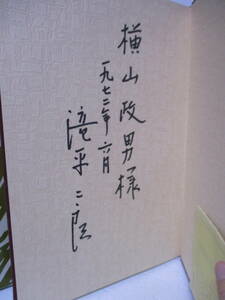 横山政男様
一九七二年六月
滝平二郎